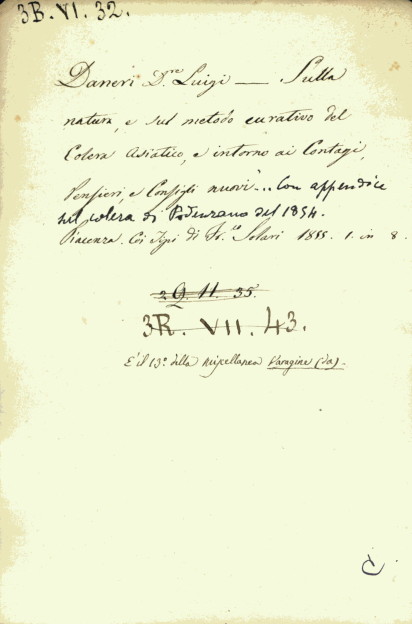 3B. VI. 32.
Daneri D.re Luigi — Sulla
natura, e sul metodo curativo del
Colera Asiatico, e intorno ai Contagi,
Pensieri, e Consigli nuovi... Con appendice
sul colera di Podenzano del 1854.
Piacenza. Coi Tipi di Fr.co Solari 1855. 1. in 8.
29. 11. 35.
3R. VII. 43.
È il 13.o della miscellanea Varagine (da).